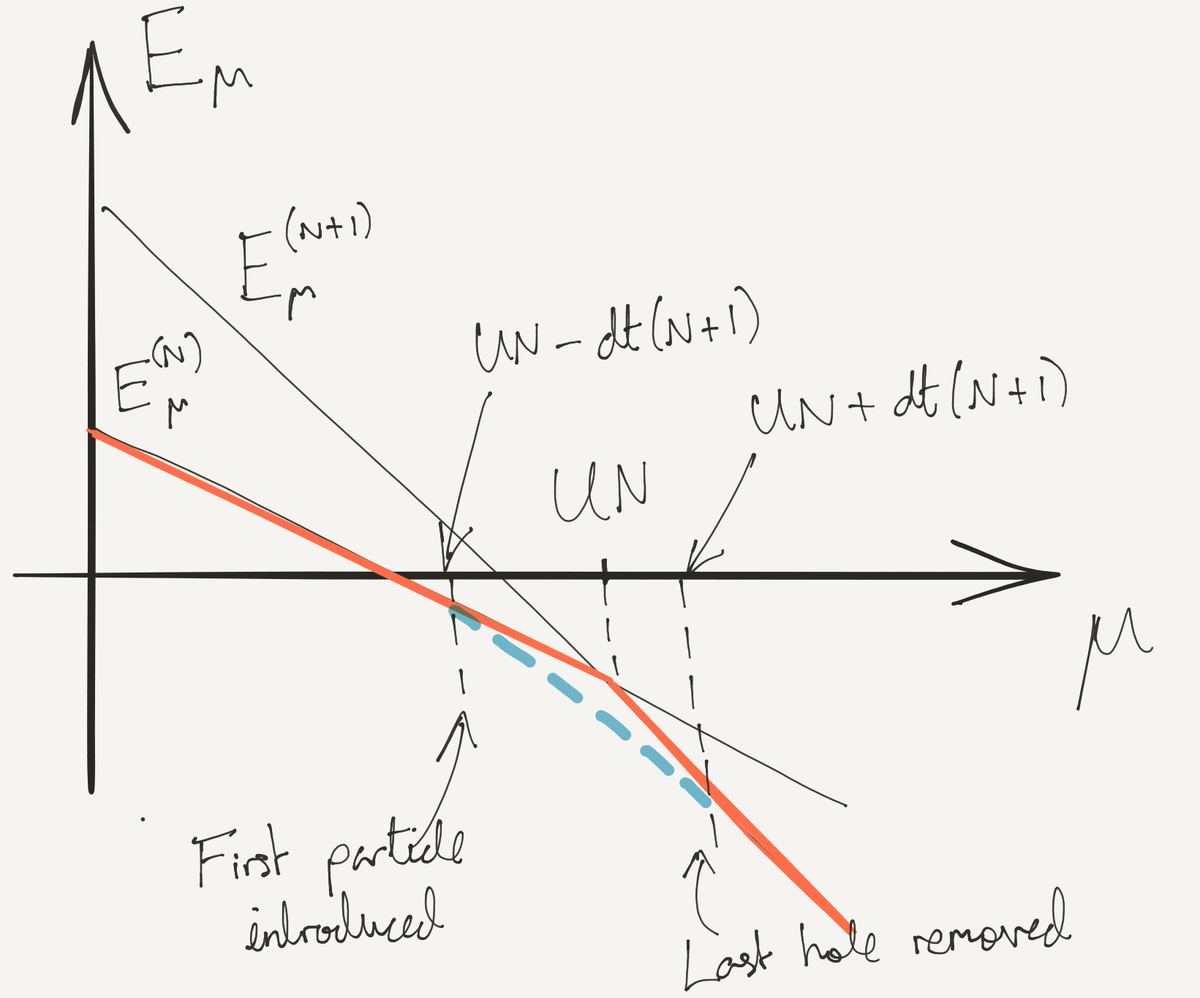 E_μ
E_μ^(N+1)
UN - dt(N+1)
E_μ^(N)
UN + dt(N+1)
UN
μ
First particle
introduced
Last hole removed